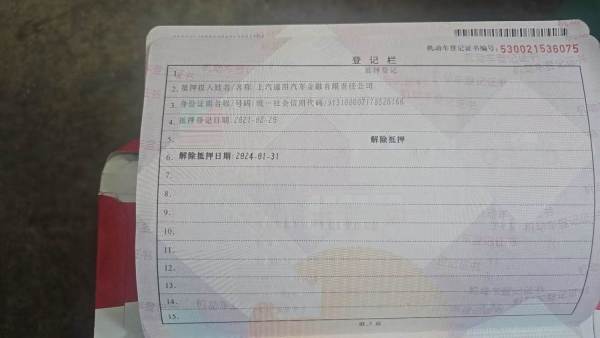 机动车登记证书编号:530021536075
登记栏
1. 抵押登记
2. 抵押权人姓名/名称:上汽通用汽车金融有限责任公司
3. 身份证明名称/号码:统一社会信用代码/
4. 抵押登记日期:2021-02-26
5. 解除抵押
6. 解除抵押日期:2024-01-31
7.
8.
9.
10.
11.
12.
13.
14.
15.